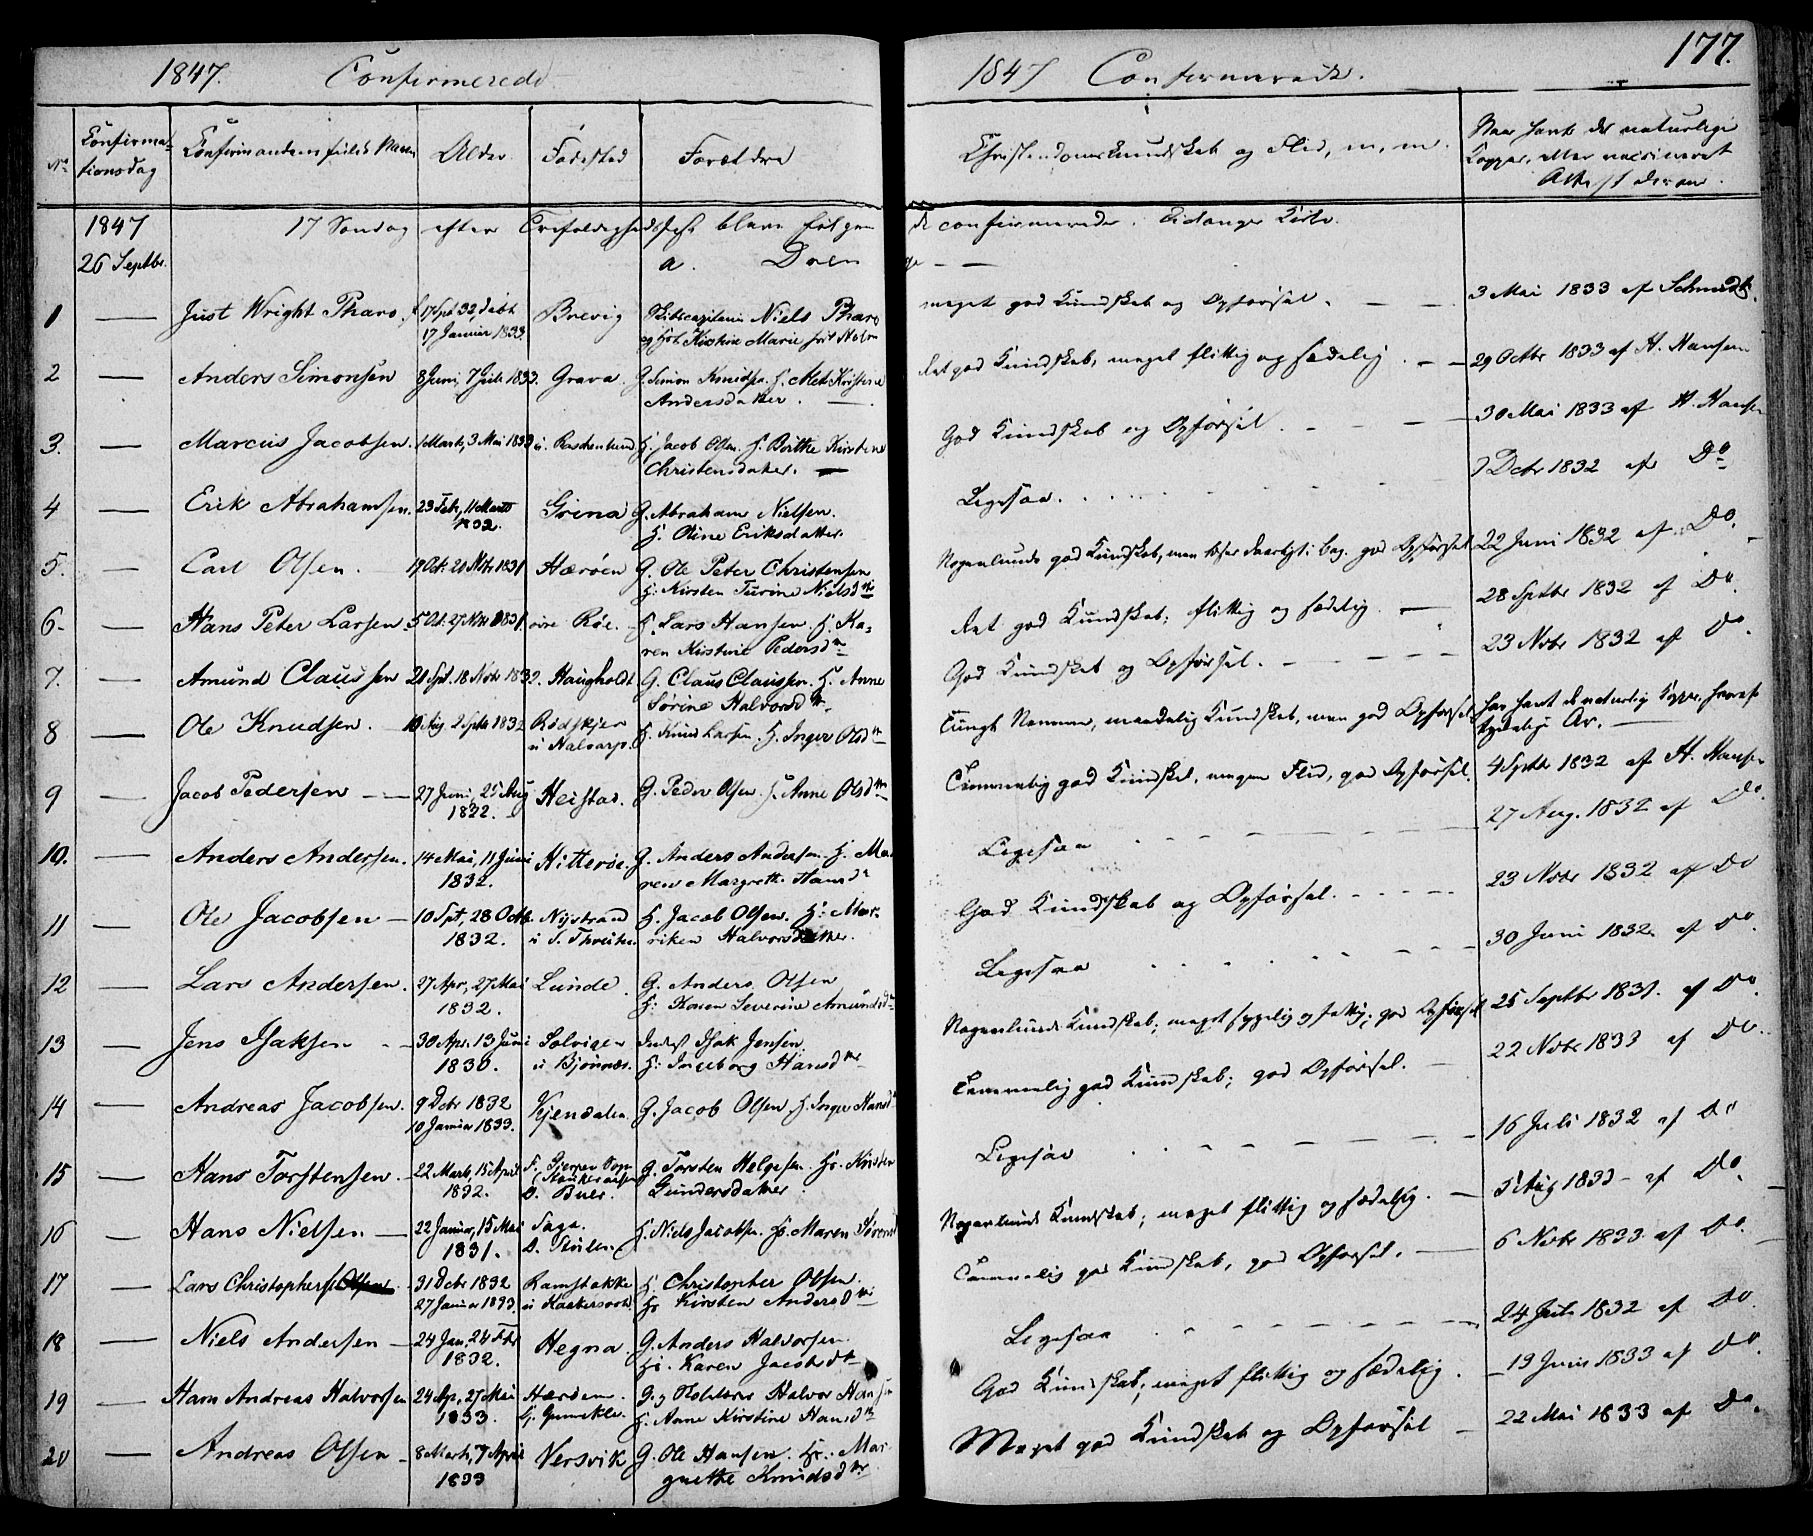 1847. Confirmerede
No Confirmationsdag Confirmandens fulde Navn Alder Fødested Forældre
1847 17 Søndag efter Trefoldighedsfest bleve følgen
26 Septbr. a. Dren
1 Just Wright Tharo, f 17 Spt 32, døbt Brevig Skibscapitain Niels Tharo
17 Januar 1833. og Hst Kirstine Marie
2 Anders Simonsen 8 Juni, 7 Juli 1833. Grava. G. Simon Knudsen. H. Met Kirstine
Andersdatter.
3. Marcus Jacobsen. 1 Marts, 3 Mai 1833 H. Jacob Olsen. H. Birthe Kirstine
Christensdatter.
4 Erik Abrahamsen. 23 Feb, 11 Marts Grina G. Abraham Nielsen.
1832. H. Oline Eriksdatter.
5. Carl Olsen. 19 Oct. 21 Nbr 1831 Hærøen G. Ole Peter Christensen
H: Kirsten Turine Nielsd
6- Hans Peter Larsen 5 Oct. 27 Nbr 1831. øvre Røe. H. Lars Hansen. H. Ka-
ren Kirstine Pedersd
7. Amund Claussen 21 Spt. 18 Nvbr 1832. Haugholdt G. Claus Claussen. H. Anne
Sørine Halvorsd
8 Ole Knudsen. Aug. 2 Sptb 1832 Rødskjer H. Knud Larsen. H. Inger Olsd
u Nalvarp.
9 Jacob Pedersen 27 Juni, 25 Aug Heistad. G. Peder Olsen. H. Anne Olsd
1832.
10. Anders Andersen. 14 Mai, 11 Juni Hitterøe. G. Anders Andersen. H. Ma-
1832. ren Margrethe Hansd
11 Ole Jacobsen 10 Spt, 28 Octb. Nystrand H. Jacob Olsen. H: Mar-
1832. riken Halvorsdatter.
12 Lars Andersen. 27 Apr, 27 Mai Lunde. G. Anders Olsen
1832. H: Karen Severine Amundsd
13 Jens Isaksen 30 Apr. 13 Juni Solvigen Inderst Isak Jensen.
1830. u Bjønnes. H: Ingeborg Hansd
14 Andreas Jacobsen. 9 Dcbr 1832 Kjendalen. G. Jacob Olsen H. Inger Hansd
10 Januar 1833.
15 Hans Torstensen. 22 Marts, 15 April F. Gjerpen Sogn G. Torsten Helgesen. H. Kirsten
1832. D. Buer. Gundersdatter
16 Hans Nielsen 22 Januar, 15 Mai Saga. H. Niels Jacobsen. H. Maren Sørensd
1831. D. Stulen
17 Lars Christophersen 31 Dcbr 1832 Ramstakke H. Christopher Olsen.
27 Januar 1833. H. Kirsten Andersd
18 Niels Andersen 24 Jan, 24 Fbr Hegna. G. Anders Halvorsen.
1832. H. Karen Jacobsd
19 Hans Andreas Halvorsen 24 Ap, 27 Mai Hærøen. G. og Halvor Hansen
1833. G. Gunnekle. H. Anne Kirstine Hansd
20 Andreas Olsen 8 Marts, 7 April Versvik G. Ole Hansen. H. Mar-
1833 grethe Knudsd
1847 Confirmerede. 177.
Christendomskundskab og Flid, m. m. Naar havte de naturlige
Kopper, eller vaccineret
Attest derom.
de confirmerede. Eidanger Kirke.
ge
meget god Kundskab og Opførsel. 3 Mai 1833 af Schmidt.
Ret god Kundskab, meget flittig og sædelig. 29 Octbr 1833 af H. Hansen
God Kundskab og Opførsel. 30 Mai 1833 af H. Hansen
Ligesaa. 7 Dcbr 1832 af Do
Nogenlunde god Kundskab, men læser daarligt i Bog. god Opførsel 22 Juni 1832 af Do.
Ret god Kundskab; flittig og sædelig. 28 Sptbr 1832 af Do.
God Kundskab og Opførsel. 23 Nvbr 1832 af Do.
Tungt Nemme, maadelig Kundskab, men god Opførsel. har havt de naturlig Kopper, hvoraf
tydelige Ar.
Temmelig god Kundskab, megen Flid, god Opførsel. 4 Sptbr 1832 af H. Hansen
Ligesaa 27 Aug. 1832 af Do.
God Kundskab og Opførsel. 23 Nvbr 1832 af Do
Ligesaa 30 Juni 1832. af Do.
Nogenlunde Kundskab; meget sygelig og fattig; god Opførsel 25 Septbr 1831. af Do.
Temmelig god Kundskab; god Opførsel. 22 Nvbr 1833 af Do.
Ligesaa 16 Juli 1832 af Do
Nogenlunde Kundskab; meget flittig og sædelig. 5 Aug 1833 af Do.
Temmelig god Kundskab, god Opførsel. 6 Nvbr 1833 af Do.
Ligesaa 24 Juli 1832 af Do.
God Kundskab; meget flittig og sædelig. 19 Juni 1833 af Do.
Meget god Kundskab og Opførsel 22 Mai 1833 af Do.